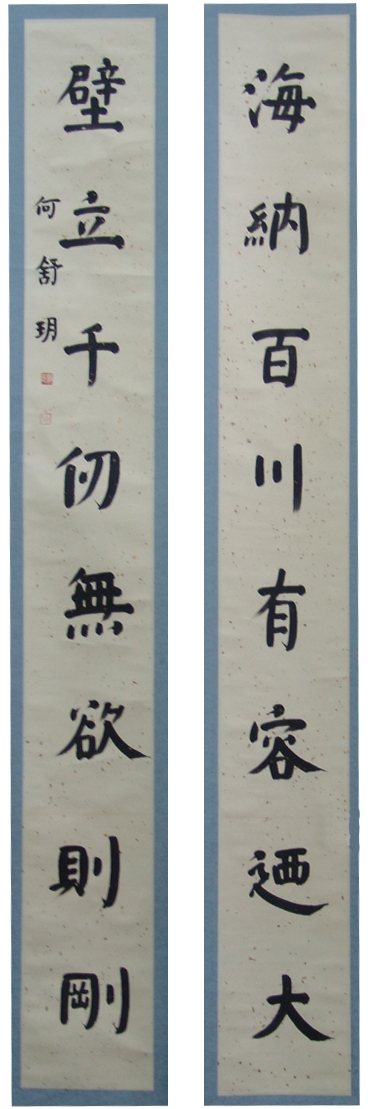 海納百川有容迺大
壁立千仞無欲則剛
何舒玥